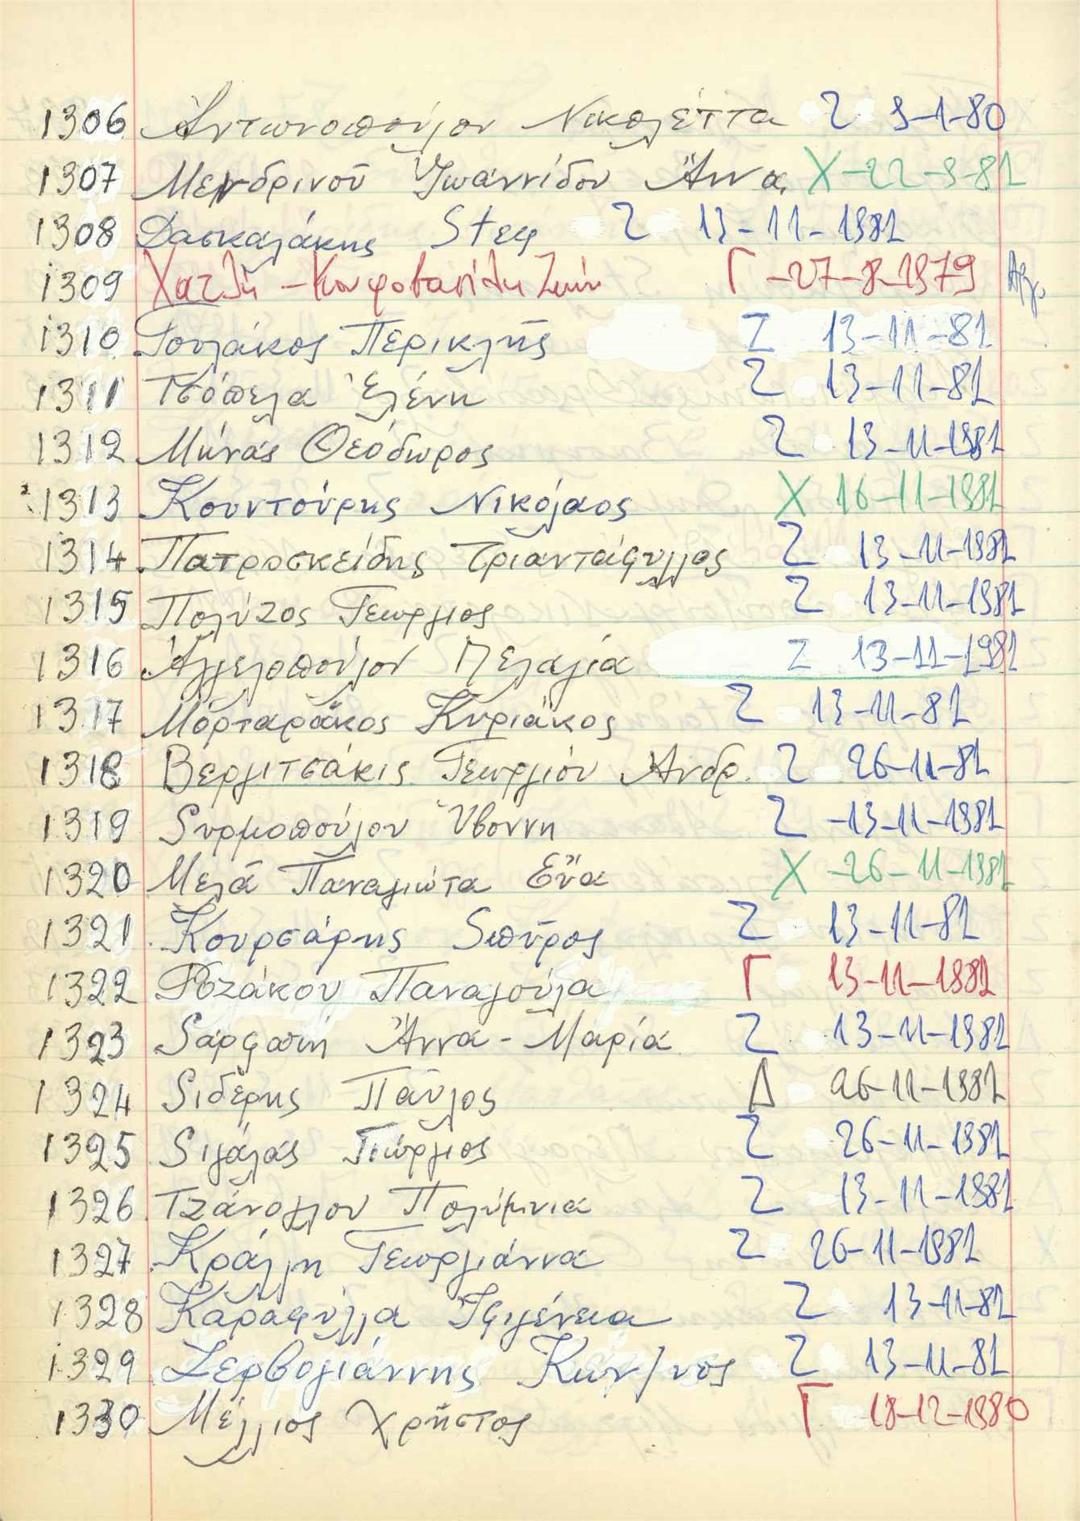 1306 Ἀντωνοπούλου Νικολέττα Ζ 9-1-80
1307 Μενδρινοῦ Ἰωαννίδου Ἄννα Χ-22-9-81
1308 Δασκαλάκης Στεφ Ζ 13-11-1981
1309 Χατζῆ - Ζωήν Γ-27-8-1979
1310 Γουλάκος Περικλῆς Ζ 13-11-81
1311 Τσόπελα Ἑλένη Ζ 13-11-81
1312 Μηνάς Θεόδωρος Ζ 13-11-1981
1313 Κουντούρης Νικόλαος Χ 16-11-1981
1314 Πατροσκείδης Τριαντάφυλλος Ζ 13-11-1981
1315 Πολύζος Γεώργιος Ζ 13-11-1981
1316 Ἀγγελοπούλου Πελαγία Ζ 13-11-1981
1317 Μορταράκος Κυριάκος Ζ 13-11-81
1318 Βερμιτσάκις Γεωργίου Ἀνδρ. Ζ 26-11-81
1319 Συρμοπούλου Ὑβοννη Ζ -13-11-1981
1320 Μελᾶ Παναγιώτα Εὔα Χ -26-11-1981
1321 Κουρσάρης Σπῦρος Ζ 13-11-81
1322 Ροζάκου Παναγούλα Γ 13-11-1981
1323 Σαρφατῆ Ἄννα-Μαρία Ζ 13-11-1981
1324 Σιδέρης Παῦλος Δ 26-11-1981
1325 Σιγάλας Γεώργιος Ζ 26-11-1981
1326 Τζάνογλου Πολύμνια Ζ 13-11-1981
1327 Κράλλη Γεωργιάννα Ζ 26-11-1981
1328 Καραφύλλια Ἰφιγένεια Ζ 13-11-81
1329 Ζερβογιάννης Κων/νος Ζ 13-11-81
1330 Μέλλιος Χρῆστος Γ 18-12-1980